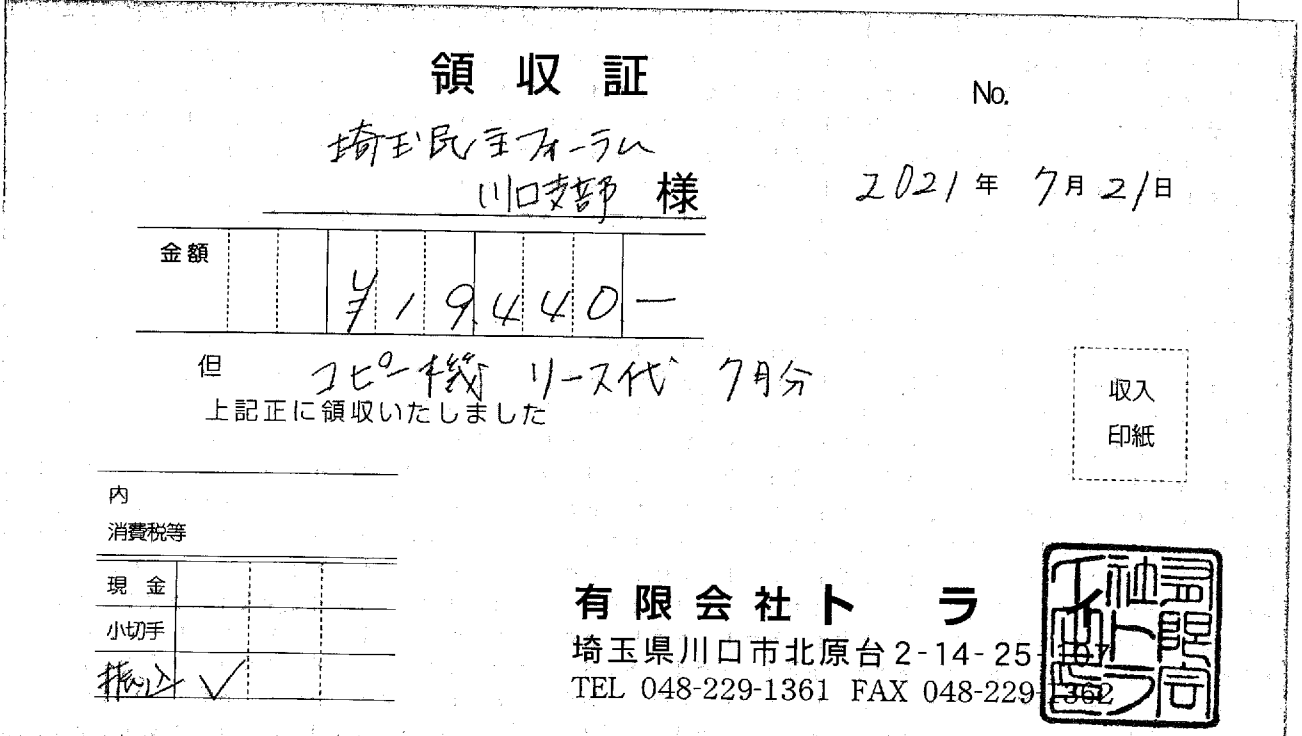 領収証
No.
埼玉民主フォーラム
川口支部 様
2021年 7月21日
金額 ¥19,440-
但 コピー機 リース代 7月分
上記正に領収いたしました
収入
印紙
内
消費税等
現金
小切手
振込 ✓
有限会社トラ
埼玉県川口市北原台2-14-25-107
TEL 048-229-1361 FAX 048-229-1362